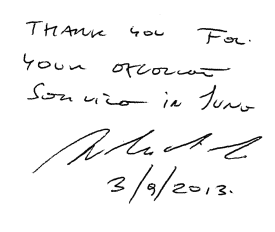 THANK YOU FOR
YOUR EXCELLENT
SERVICE in JUNE
3/9/2013.